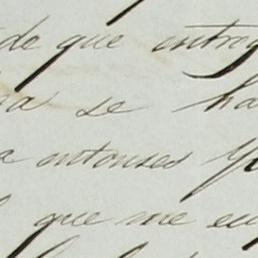 de que entreg
a se ha
a entonses y
que me en